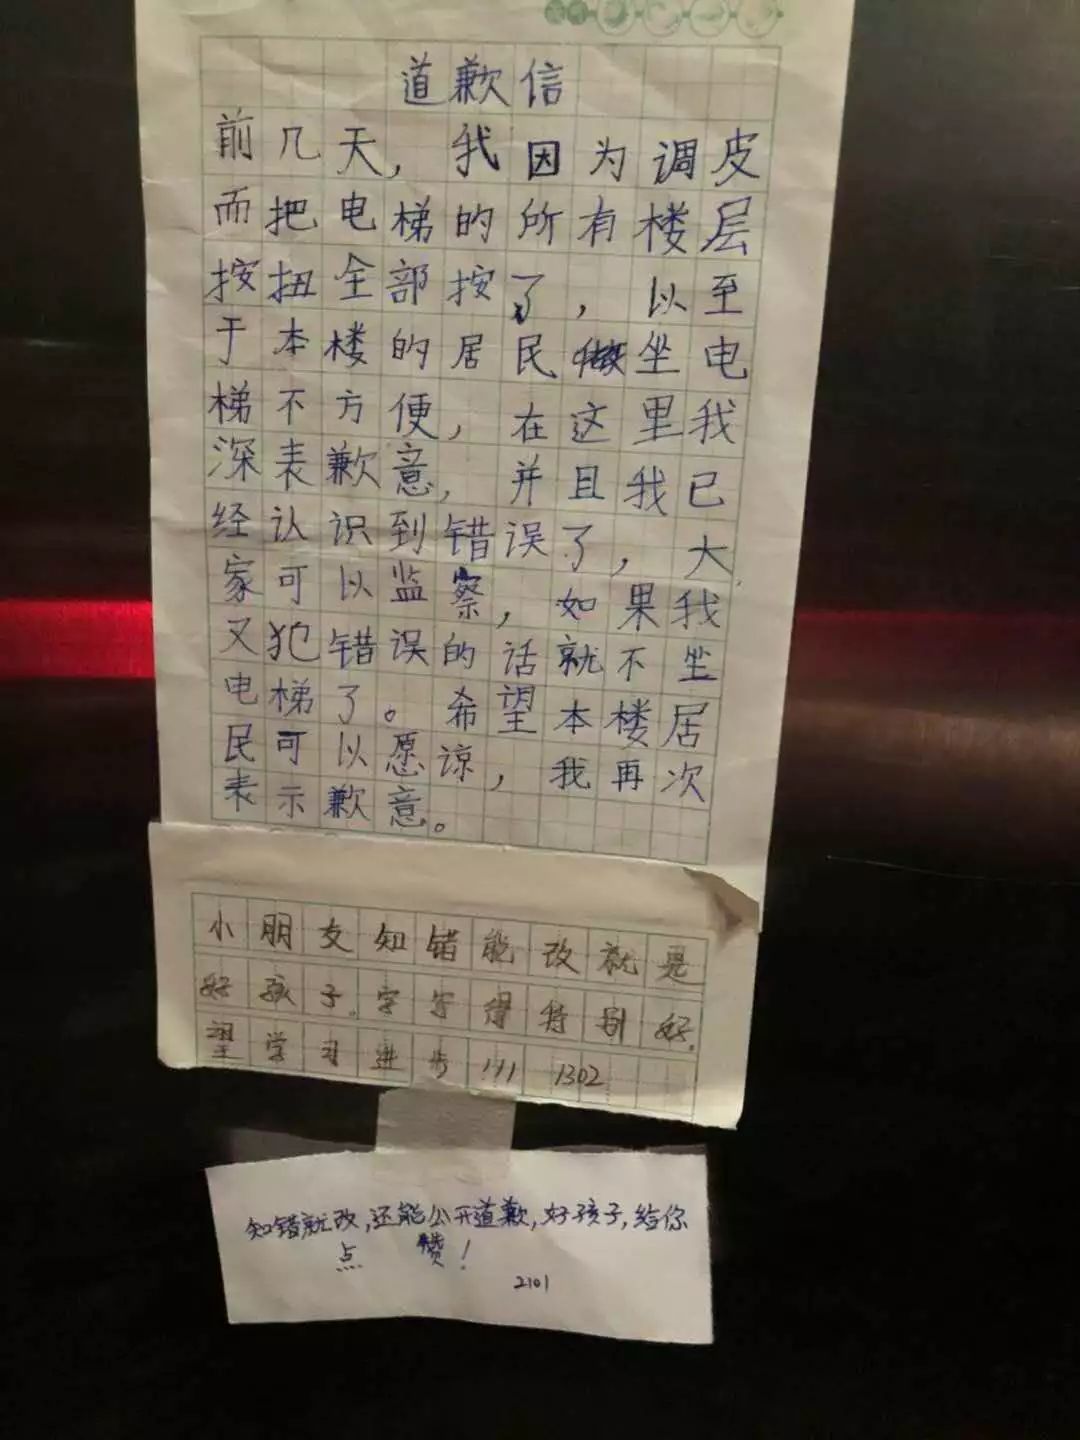 道歉信
前几天，我因为调皮
而把电梯的所有楼层
按扭全部按了，以至
于本楼的居民坐电
梯不方便，在这里我
深表歉意，并且我已
经认识到错误了，大
家可以监察，如果我
又犯错误的话就不坐
电梯了。希望本楼居
民可以愿谅，我再次
表示歉意。
小朋友知错能改就是
好孩子。字写得特别好。
望学习进步!!! 1302
知错就改，还能公开道歉，好孩子，给你
点赞！
2101